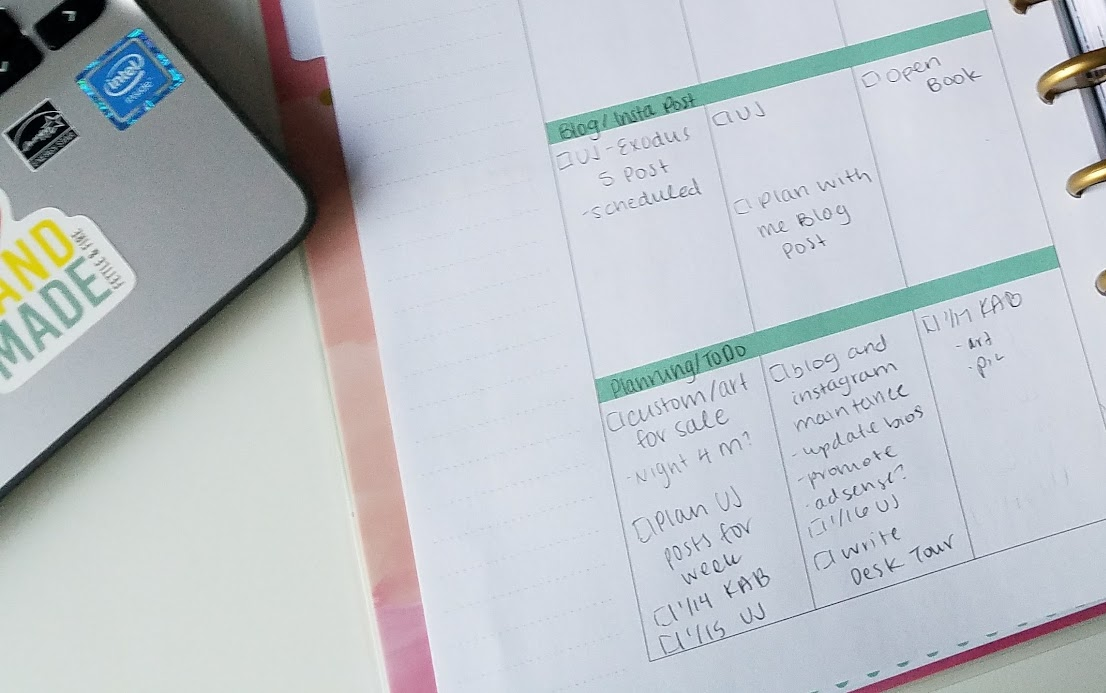 intel
inside
AND
MADE
FETTLE & FIRE
Blog/Insta Post
UJ-Exodus
5 Post
-scheduled
UJ
Plan with
me Blog
Post
Open
Book
Planning/ToDo
custom/art
for sale
-Night 4 M?
Plan UJ
posts for
week
1/14 KAB
1/15 UJ
blog and
instagram
maintance
-update bios
-promote
-adsense?
1/16 UJ
write
Desk Tour
1/17 KAB
-art